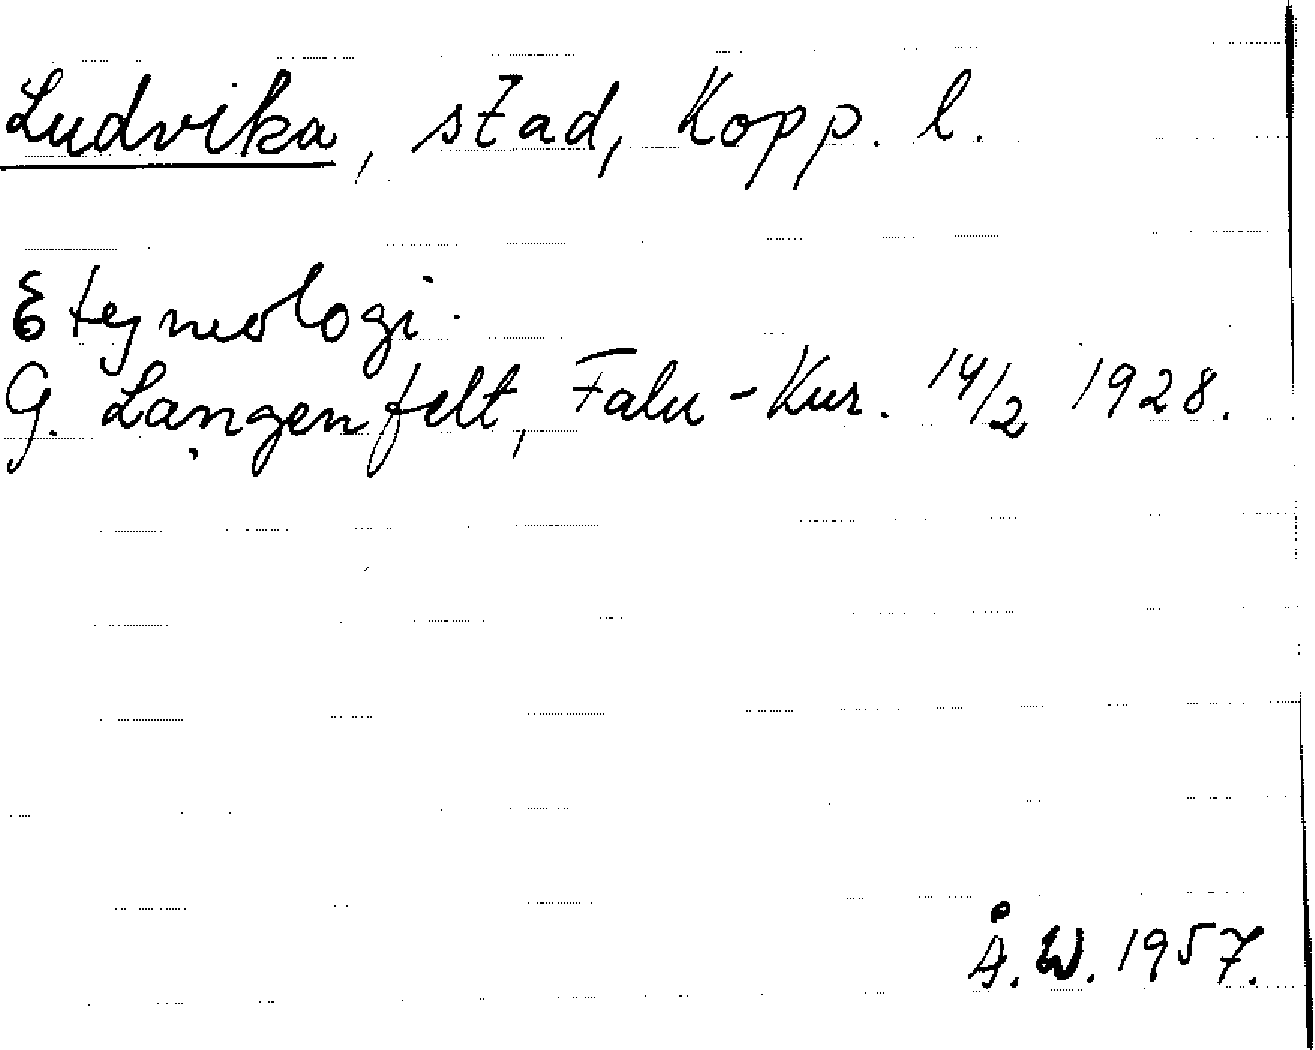 Ludvika, stad, Kopp. l.
Etymologi.
G. Langenfelt, Falu-Kur. 14/2 1928.
Å. W. 1957.